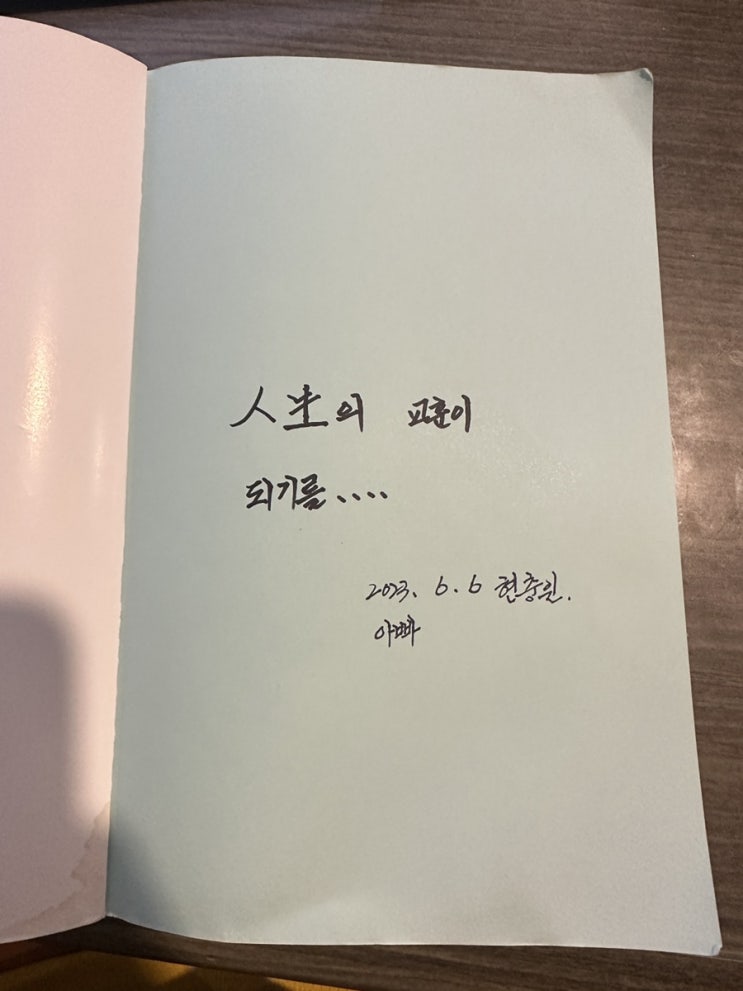 人生의 교훈이
되기를....
2023. 6. 6 현충일.
아빠